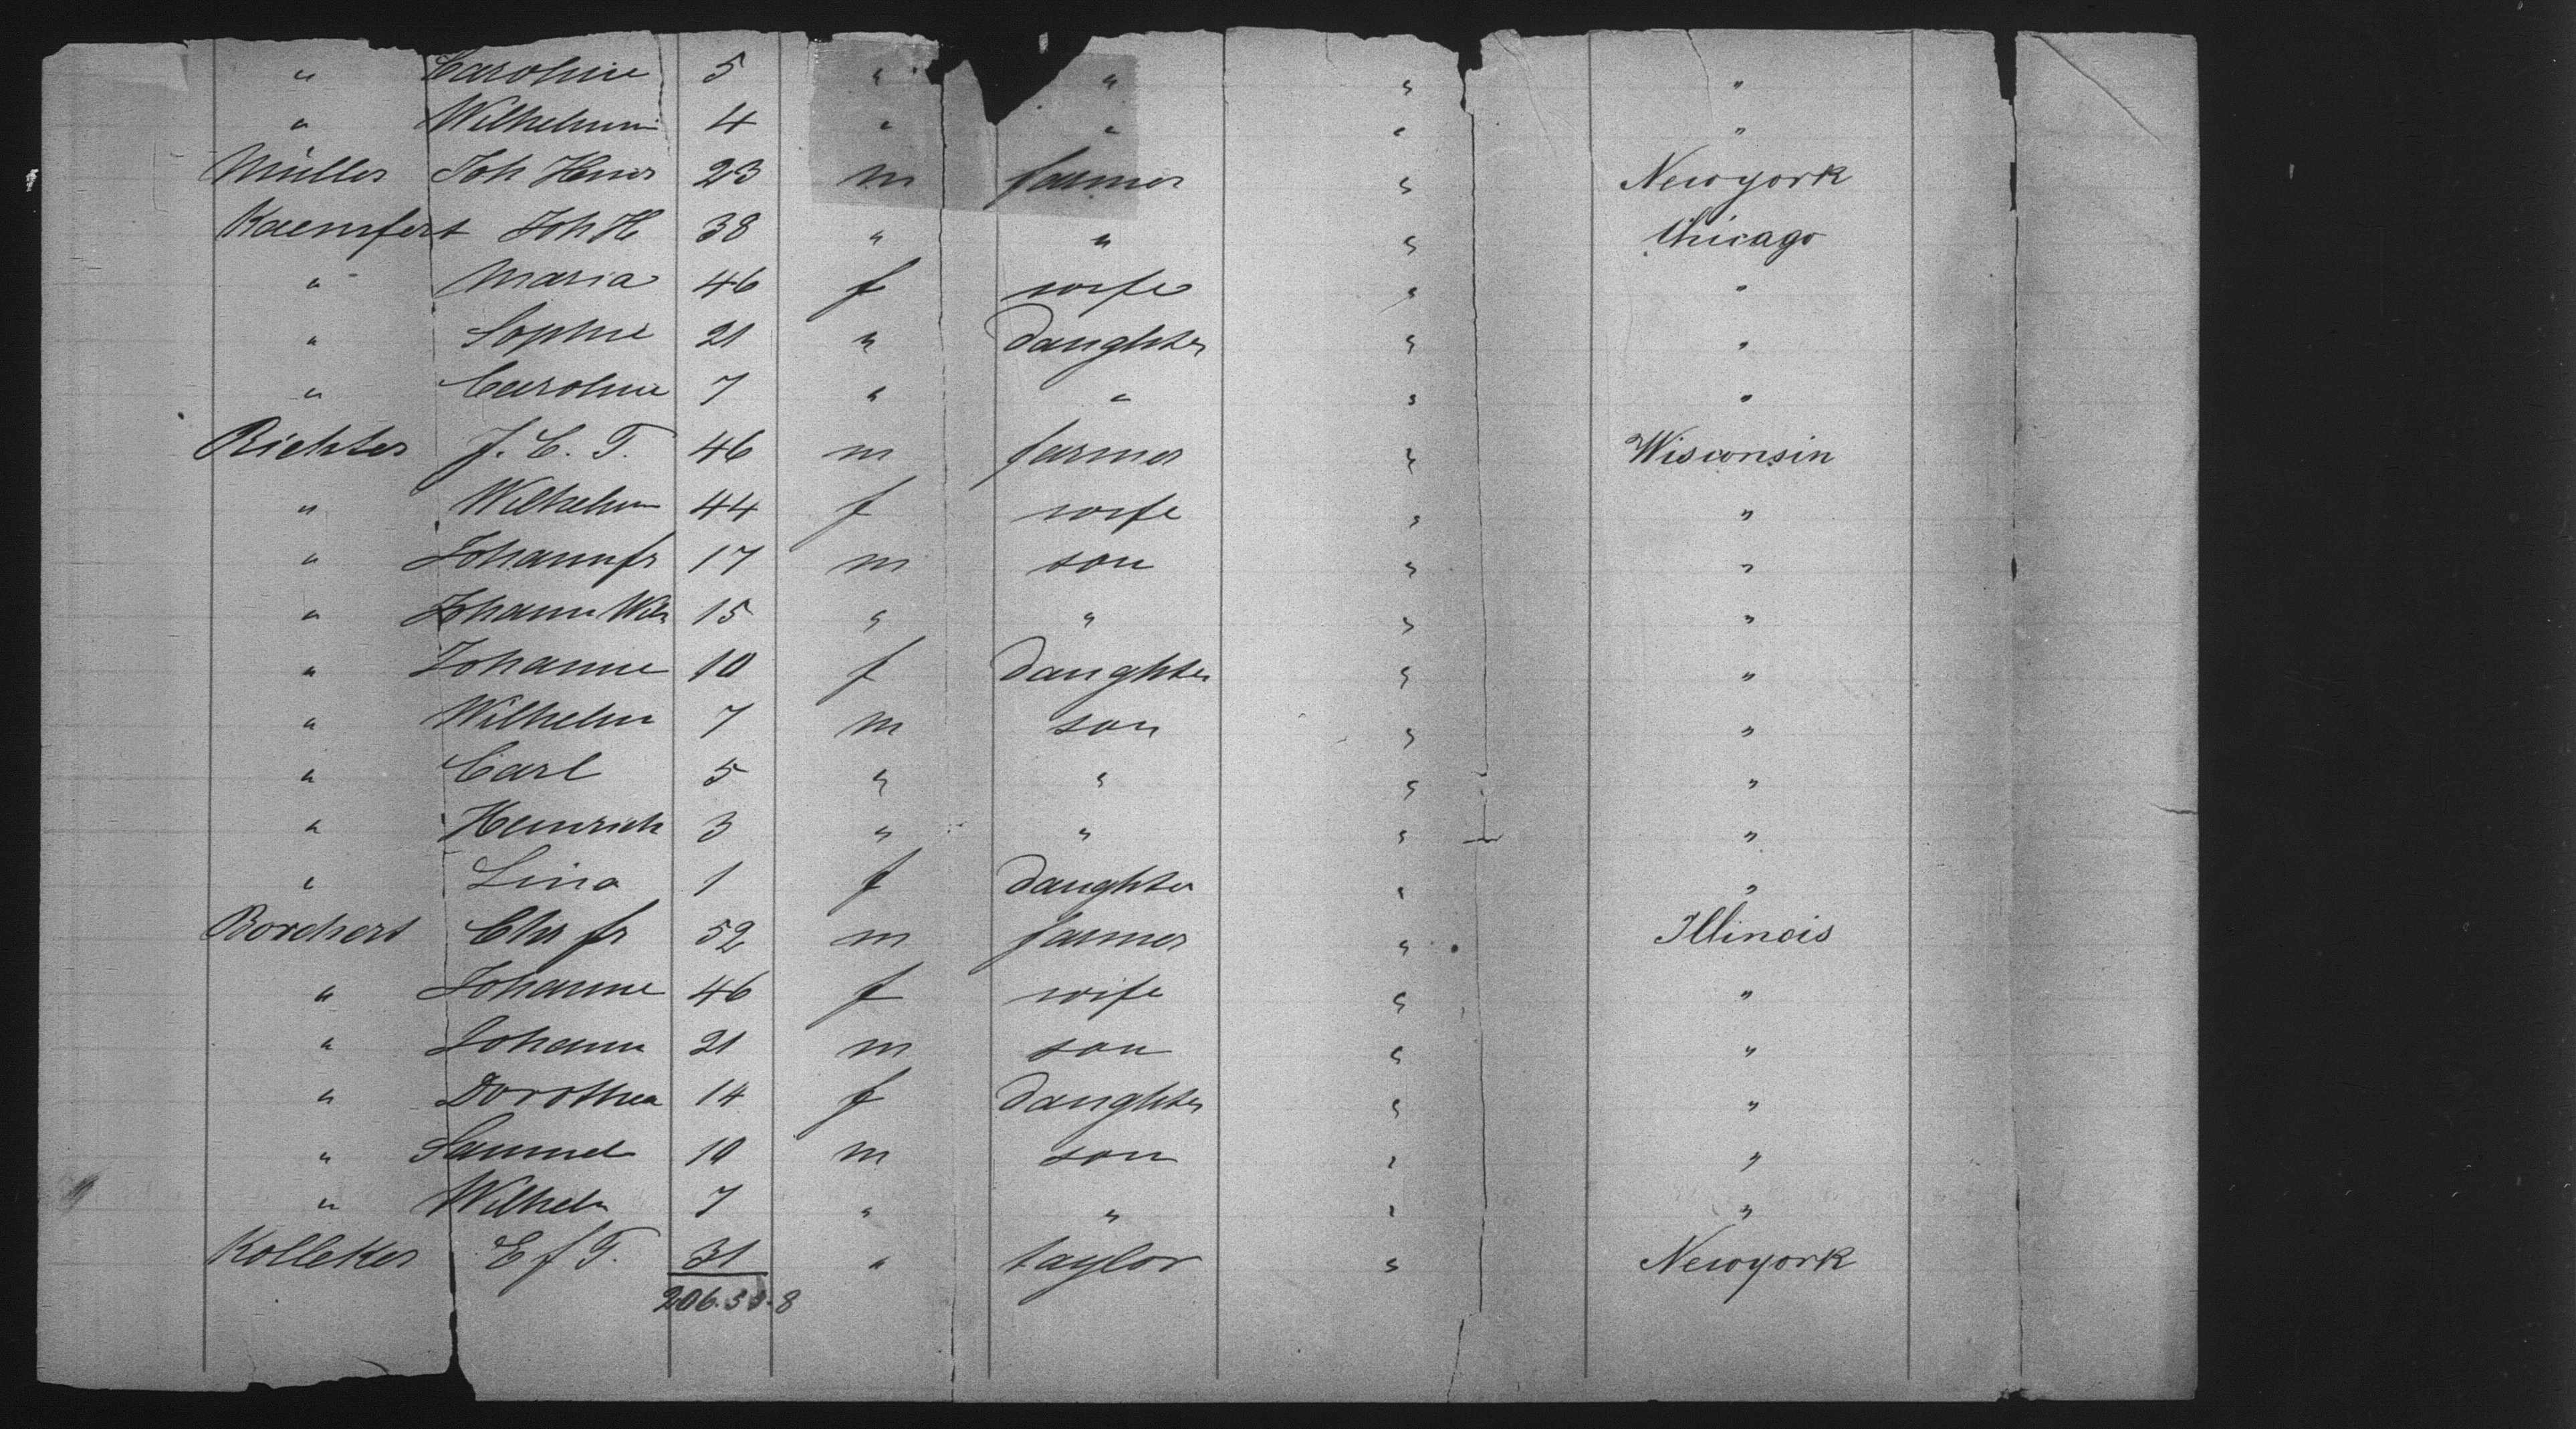 " Caroline 5 " " " "
" Wilhelmin 4 " " " "
Müller Joh Henr 23 m farmer " Newyork
Kaemfert Joh H 38 " " " Chicago
" Maria 46 f wife " "
" Sophie 21 " daughter " "
" Caroline 7 " " " "
Richter J. C. T. 46 m farmer " Wisconsin
" Wilhelm 44 f wife " "
" Johann fr 17 m son " "
" Johann Wilh 15 " " " "
" Johanne 10 f daughter " "
" Wilhelm 7 m son " "
" Carl 5 " " " "
" Heinrich 3 " " " "
" Lina 1 f daughter " "
Borchert Chr fr 52 m farmer " Illinois
" Johanne 46 f wife " "
" Johann 21 m son " "
" Dorothea 14 f daughter " "
" Samuel 10 m son " "
" Wilhelm 7 " " " "
Kolleker E f T. 31 " taylor " Newyork